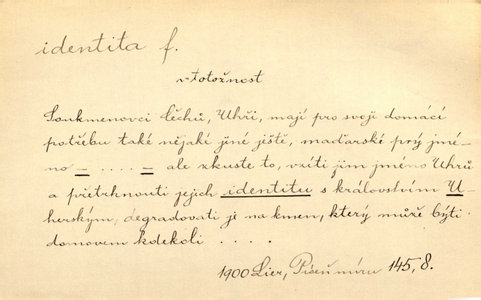 identita f.
v. totožnost
Soukmenovci Čechů, Uhři, mají pro svoji domácí
potřebu také nějaké jiné ještě, maďarské prý jmé-
no - .... - ale zkuste to, vzíti jim jméno Uhrů
a přetrhnouti jejich identitu s královstvím U-
herským, degradovati je na kmen, který může býti
domovem kdekoli ....
1900 Lier, Píseň míru 145, 8.